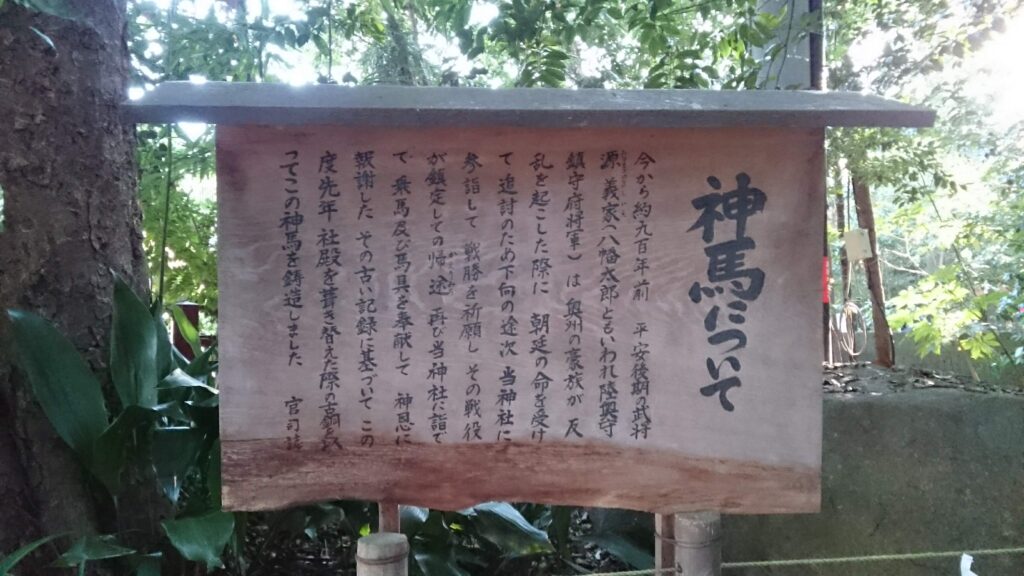 神馬について
今から約九百年前 平安後期の武将
源義家(八幡太郎ともいわれ陸奥守
鎮守府将軍)は奥州の豪族が 反
乱を起こした際に 朝廷の命を受け
て 追討のため下向の途次 当神社に
参詣して 戦勝を祈願し その戦役
が鎮定しての帰途 再び当神社に詣で
て 乗馬及び馬具を奉献して 神恩に
報謝した その古い記録に基づいて この
度先年 社殿を葺き替えた際の古銅を以
ってこの神馬を鋳造しました 宮司